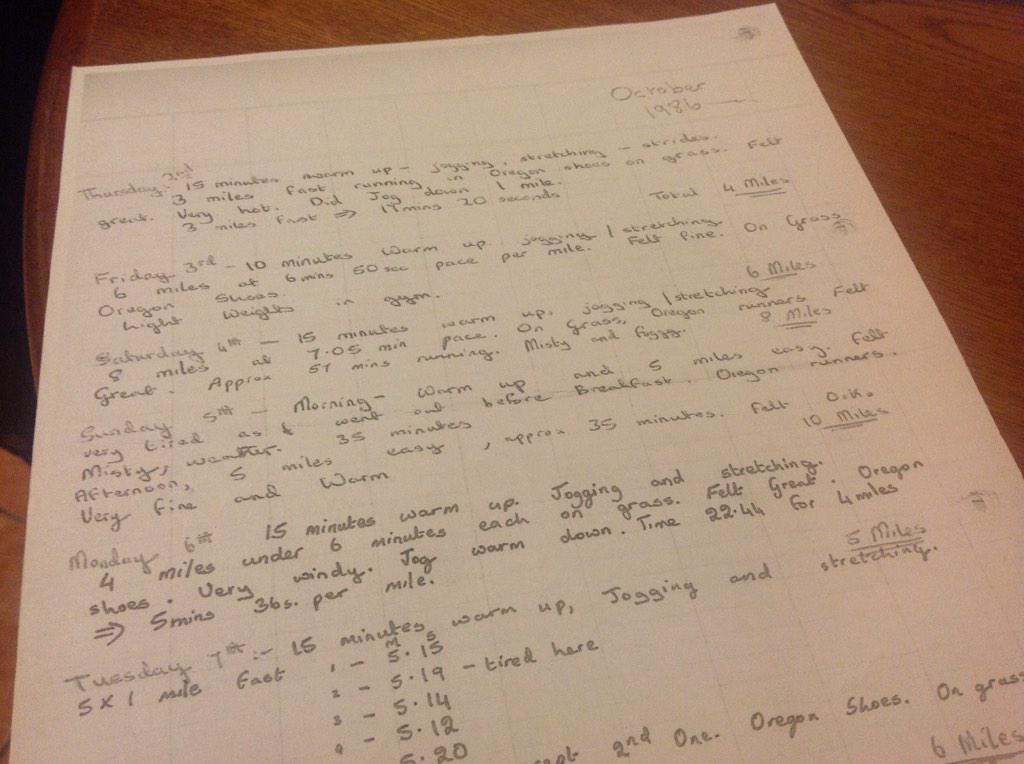 October
1986
Thursday 2nd 15 minutes warm up - jogging, stretching - strides.
3 miles fast running in Oregon shoes on grass. Felt
great. Very hot. Did Jog down 1 mile.
3 miles fast ⇒ 17mins 20 seconds Total 4 Miles
Friday 3rd - 10 minutes warm up. jogging / stretching
6 miles at 6 mins 50 sec pace per mile. Felt fine. On Grass
Oregon Shoes.
Light Weights in gym. 6 Miles
Saturday 4th - 15 minutes warm up, jogging / stretching
8 miles at 7.05 min pace. On Grass, Oregon runners Felt
Great. Approx 57 mins running. Misty and foggy. 8 Miles
Sunday 5th - Morning - Warm up and 5 miles easy. Felt
very tired as I went out before Breakfast. Oregon runners.
Misty, weather. 35 minutes
Afternoon, 5 miles easy, approx 35 minutes. Felt O.K.
Very fine and Warm 10 Miles
Monday 6th 15 minutes warm up. Jogging and stretching.
4 miles under 6 minutes each on grass. Felt Great. Oregon
shoes. Very windy. Jog warm down. Time 22.44 for 4 miles
⇒ 5mins 36s. per mile. 5 Miles
Tuesday 7th :- 15 minutes warm up, Jogging and stretching.
M S
5 X 1 mile fast 1 - 5.15
2 - 5.19 - tired here
3 - 5.14
4 - 5.12
5.20
2nd One. Oregon Shoes. On grass
6 Miles